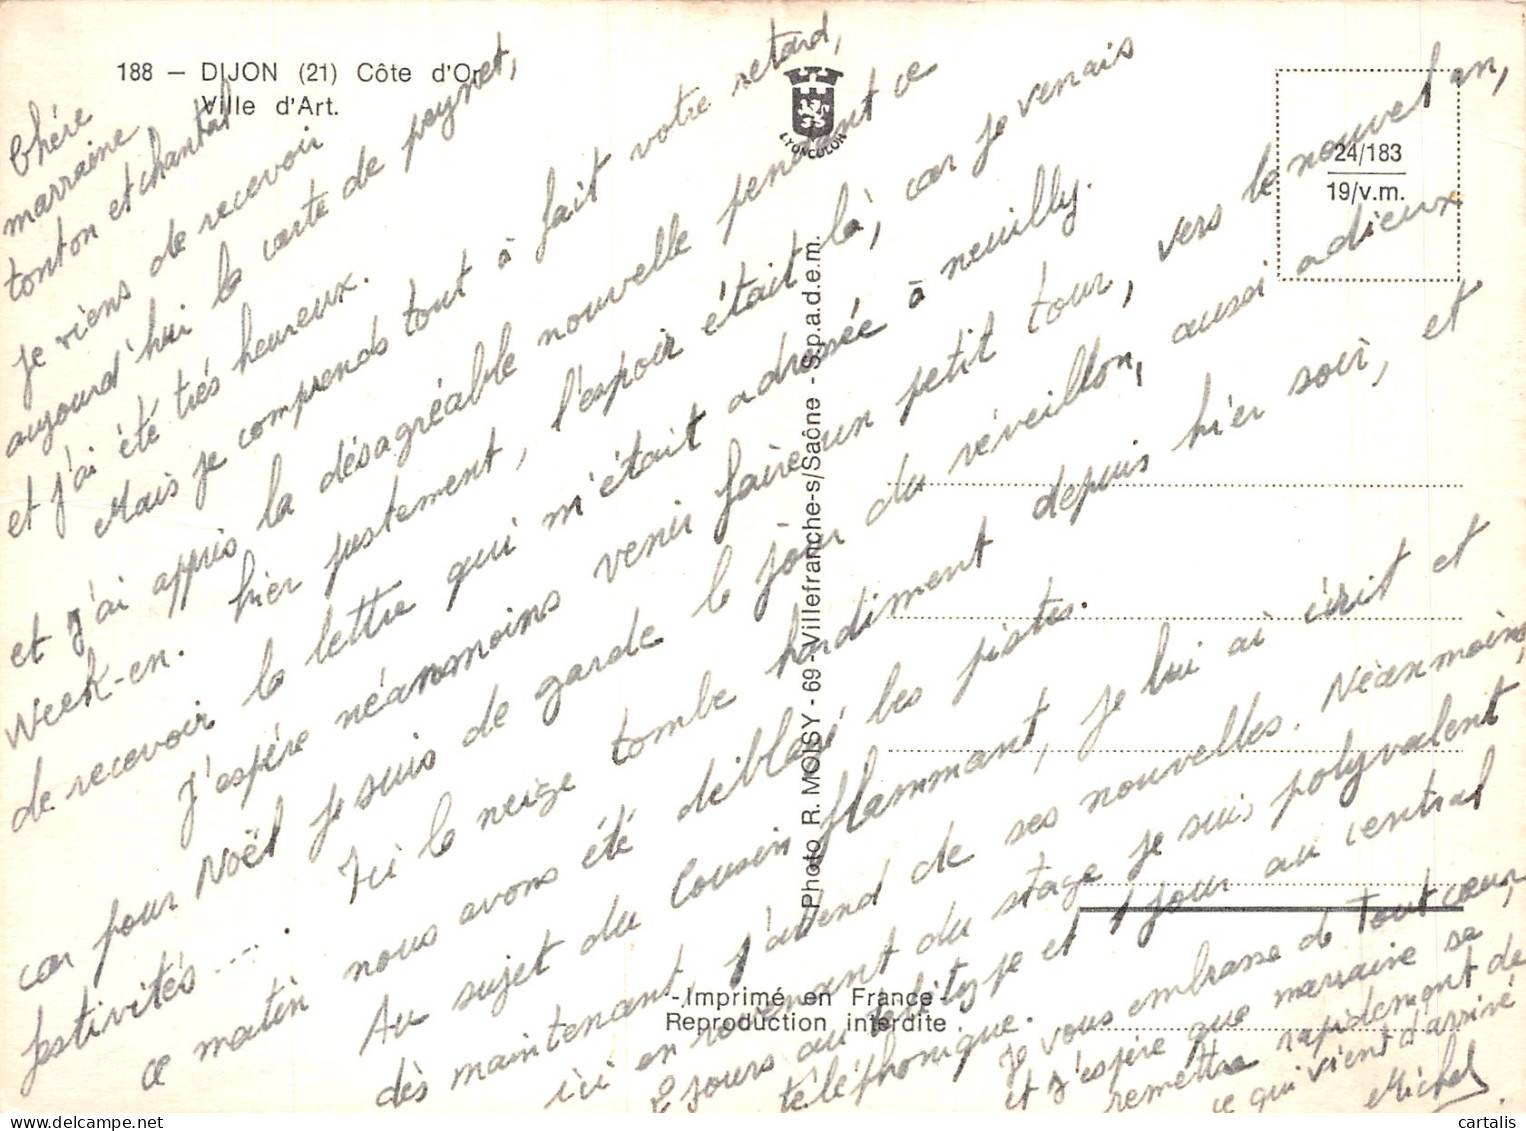 188 — DIJON (21) Côte d'Or
Ville d'Art.
LYONCOLOR
24/183
19/v.m.
Photo R. MOISY - 69 - Villefranche-s/Saône - S.p.a.d.e.m.
- Imprimé en France -
Reproduction interdite
Chére
marraine
tonton et chantal
Je viens de recevoir
aujourd'hui la carte de peynet,
et j'ai été trés heureux.
Mais je comprends tout à fait votre retard,
et j'ai appris la désagréable nouvelle pendant ce
Week-en. hier justement, l'espoir était là, car je venais
de recevoir la lettre qui m'était adressée à neuilly.
J'espére néanmoins venir faire un petit tour, vers le nouvel an,
car pour Noël je suis de garde le jour du réveillon, aussi adieux
festivités ....
Ici la neige tombe hardiment depuis hier soir, et
ce matin nous avons été déblayé les pistes.
Au sujet du Cousin flammant, je lui ai écrit et
dès maintenant, j'attend de ses nouvelles. Néanmoins,
ici en revenant du stage je suis polyvalent
2 jours au télétype et 1 jour au central
téléphonique.
Je vous embrasse de tout cœur,
et j'espére que marraine se
remettra rapidement de
ce qui vient d'arrivé
Michel
cartalis